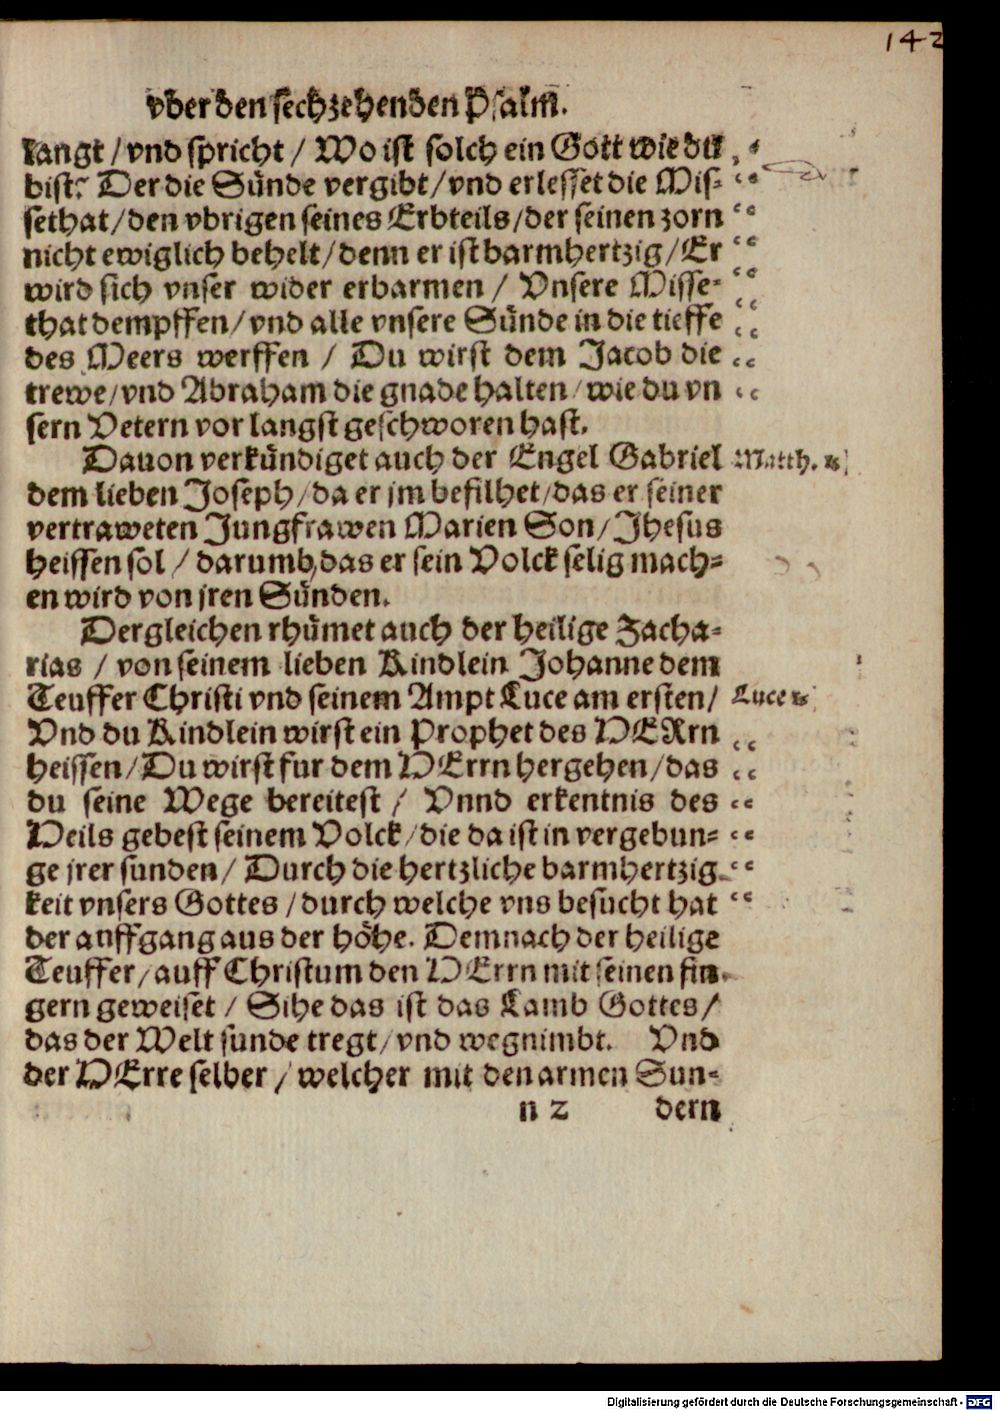 142
vber den sechzehenden Psalm.
langt / vnd spricht / Wo ist solch ein Gott wie du
bist? Der die Sünde vergibt / vnd erlesset die Mis-
sethat / den vbrigen seines Erbteils / der seinen zorn
nicht ewiglich behelt / denn er ist barmhertzig / Er
wird sich vnser wider erbarmen / Vnsere Misse-
that dempffen / vnd alle vnsere Sünde in die tieffe
des Meers werffen / Du wirst dem Jacob die
trewe / vnd Abraham die gnade halten / wie du vn
sern Vetern vor langst geschworen hast.
Dauon verkündiget auch der Engel Gabriel Matth.
dem lieben Joseph / da er jm befilhet / das er seiner
vertraweten Jungfrawen Marien Son / Jhesus
heissen sol / darumb, das er sein Volck selig mach-
en wird von jren Sünden.
Dergleichen rhümet auch der heilige Zacha-
rias / von seinem lieben Kindlein Johanne dem
Teuffer Christi vnd seinem Ampt Luce am ersten / Luce
Vnd du Kindlein wirst ein Prophet des HERrn
heissen / Du wirst fur dem HErrn hergehen / das
du seine Wege bereitest / Vnnd erkentnis des
Heils gebest seinem Volck / die da ist in vergebun-
ge jrer sunden / Durch die hertzliche barmhertzig-
keit vnsers Gottes / durch welche vns besucht hat
der auffgang aus der höhe. Demnach der heilige
Teuffer / auff Christum den HErrn mit seinen fin-
gern geweiset / Sihe das ist das Lamb Gottes /
das der Welt sunde tregt / vnd wegnimbt. Vnd
der HErre selber / welcher mit den armen Sun-
n 2 dern
Digitalisierung gefördert durch die Deutsche Forschungsgemeinschaft - DFG